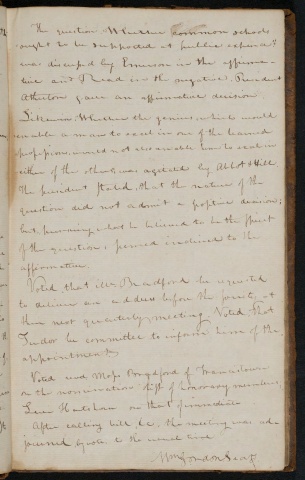 The question Whether common schools
ought to be supported at public expense?
was discussed by Emerson in the affirma-
tive and Read in the negative. President
Atherton gave an affirmative decision.
Likewise, Whether the genius, which would
enable a man to excel in one of the learned
professions would not also enable him to excel in
either of the others, was agitated by Abbot & Hill
The president stated, that the nature of the
question did not admit a positive decision;
but, pursuing what he believed to be the spirit
of the question, he seemed inclined to the
affirmative.
Voted that Mr. Bradford be requested
to deliver an address before the society at
their next quarterly meeting. Voted that
Tudor be committee to inform him of the
appointment.
Voted and Mr. Bradford of
on the nomination list of honorary members,
on that of immediate
After calling bill, &c, the meeting was ad-
journed quote to the usual time
Wm Gordon Secy